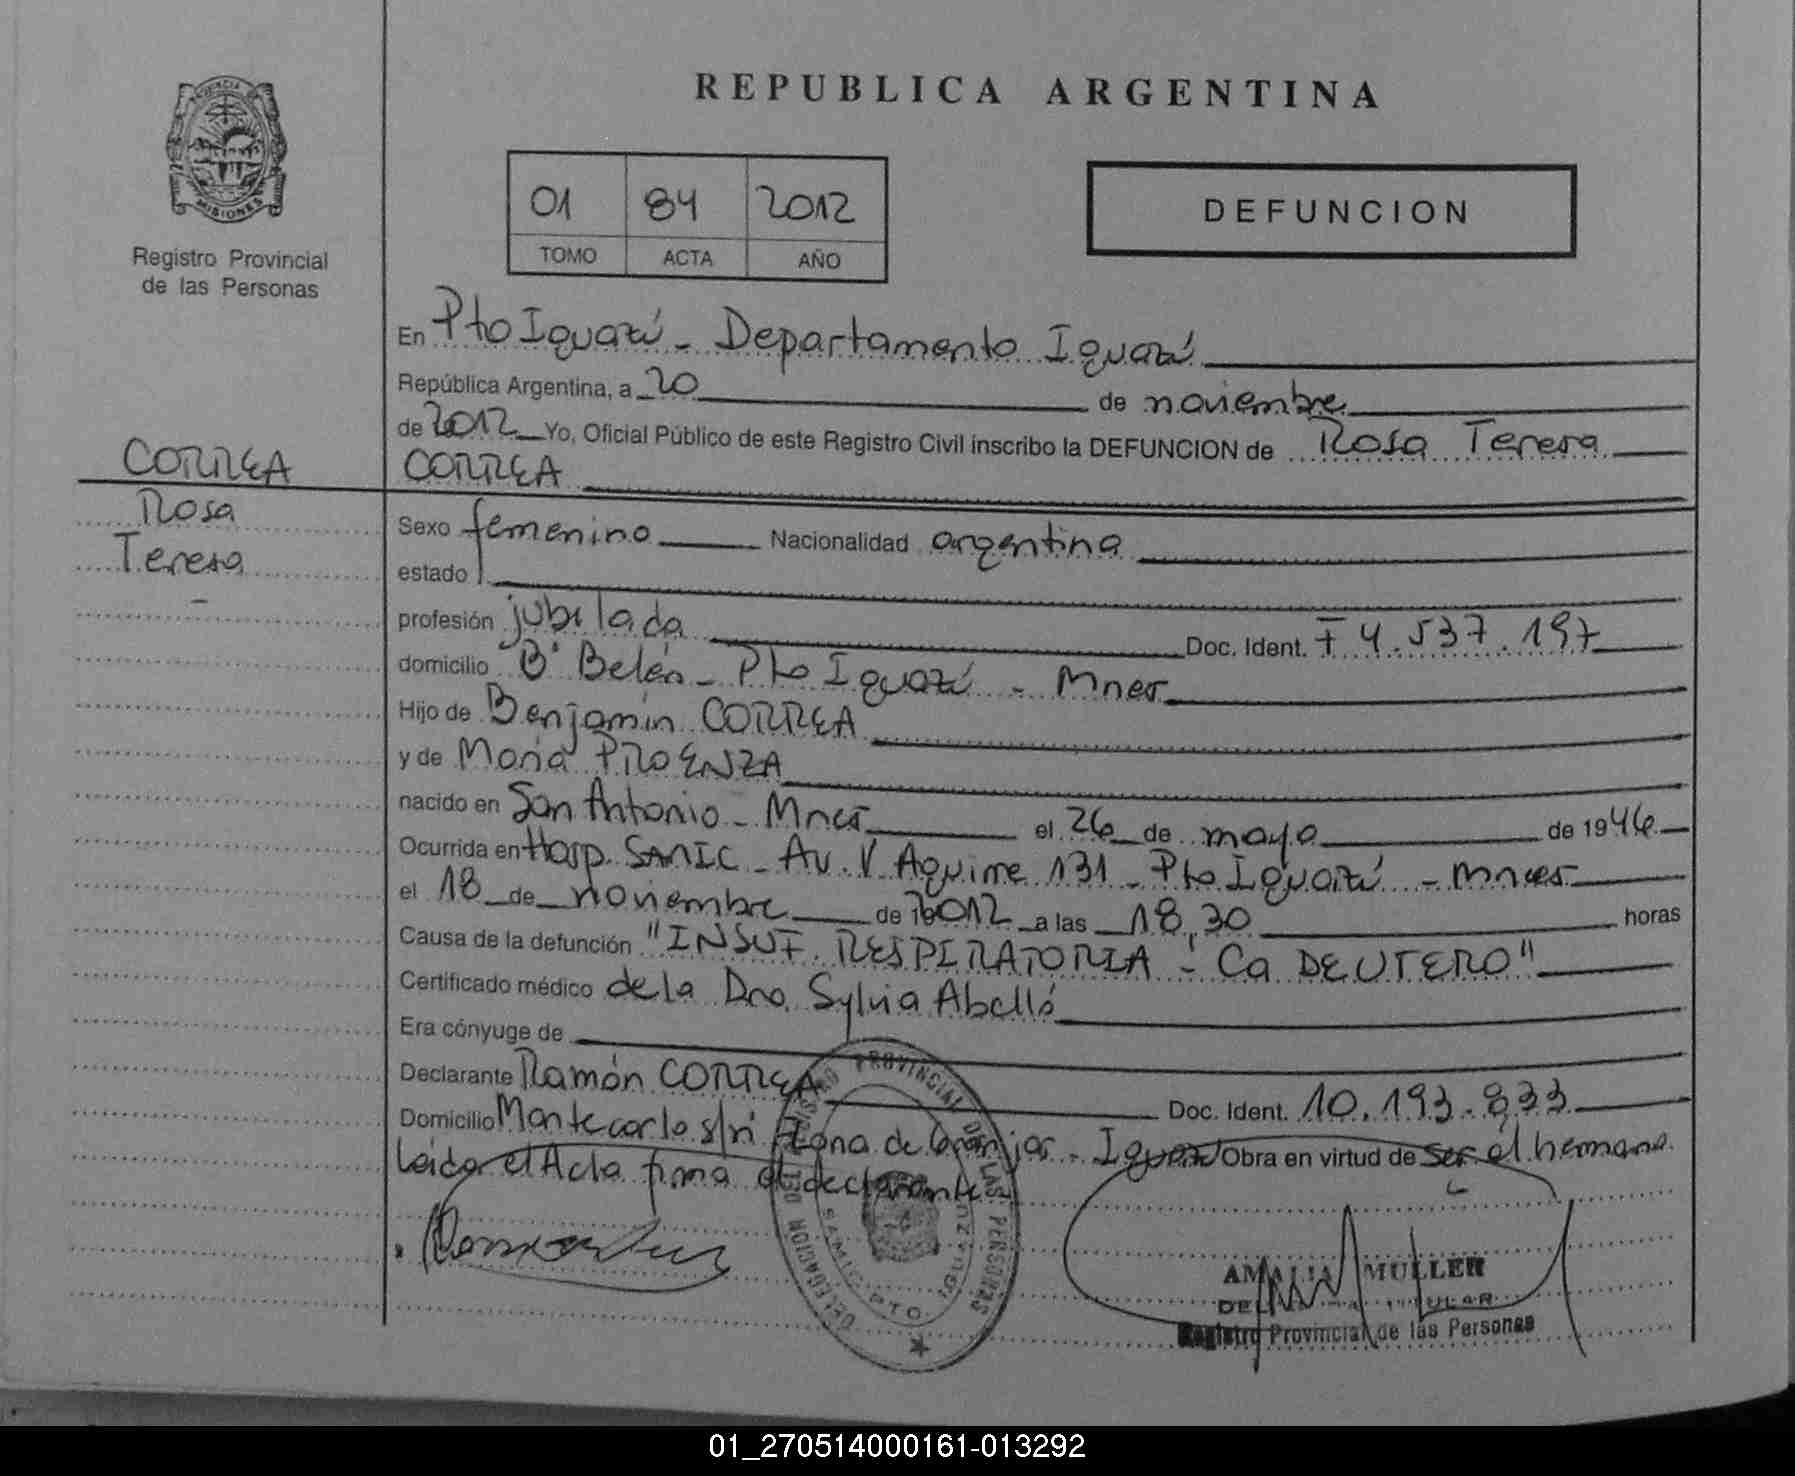 REPUBLICA ARGENTINA
PROVINCIA
MISIONES
Registro Provincial
de las Personas
01 84 2012
TOMO ACTA AÑO
DEFUNCION
En Pto Iguazú - Departamento Iguazú
República Argentina, a 20 de noviembre
de 2012 Yo, Oficial Público de este Registro Civil inscribo la DEFUNCION de Rosa Teresa
CORREA
CORREA
Rosa
Teresa
Sexo femenino Nacionalidad argentina
estado
profesión jubilada Doc. Ident. F 4.537.197
domicilio B° Belén - Pto Iguazú - Mnes
Hijo de Benjamín CORREA
y de María PROENZA
nacido en San Antonio - Mnes el 26 de mayo de 1946
Ocurrida en Hosp. SAMIC - Av. V. Aguirre 131 - Pto Iguazú - Mnes
el 18 de noviembre de 2012 a las 18,30 horas
Causa de la defunción "INSUF. RESPIRATORIA - Ca DE UTERO"
Certificado médico de la Dra. Sylvia Abelló
Era cónyuge de
Declarante Ramón CORREA Doc. Ident. 10.193.833
Domicilio Montecarlo s/n Zona de Granjas - Iguazú Obra en virtud de ser el hermano.
Leída el Acta firma el declarante
REGISTRO PROVINCIAL DE LAS PERSONAS
DELEGACION
SAMIC - PTO. IGUAZU
AMALIA MULLER
Registro Provincial de las Personas
01_270514000161-013292